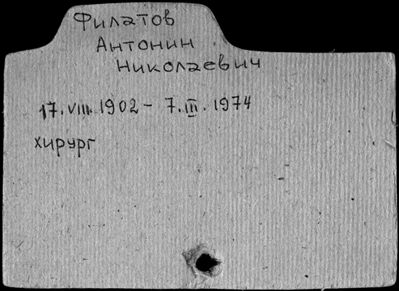 Филатов
Антонин
Николаевич
17.VIII.1902 – 7.III.1974
хирург